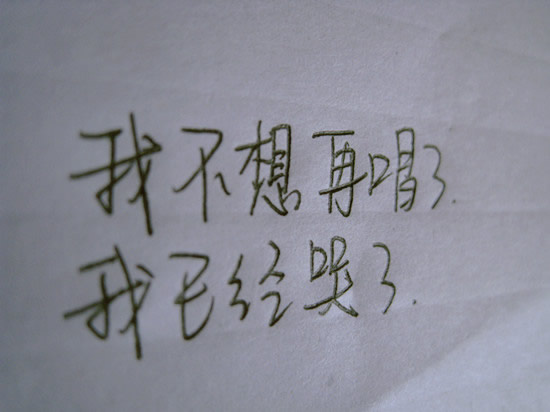 我不想再唱了.
我已经哭了.